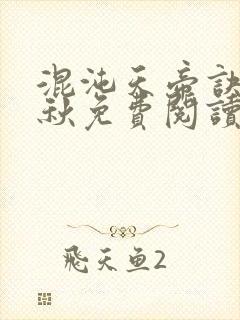 混沌天帝訣
秋免費閱讀
飛天鱼2